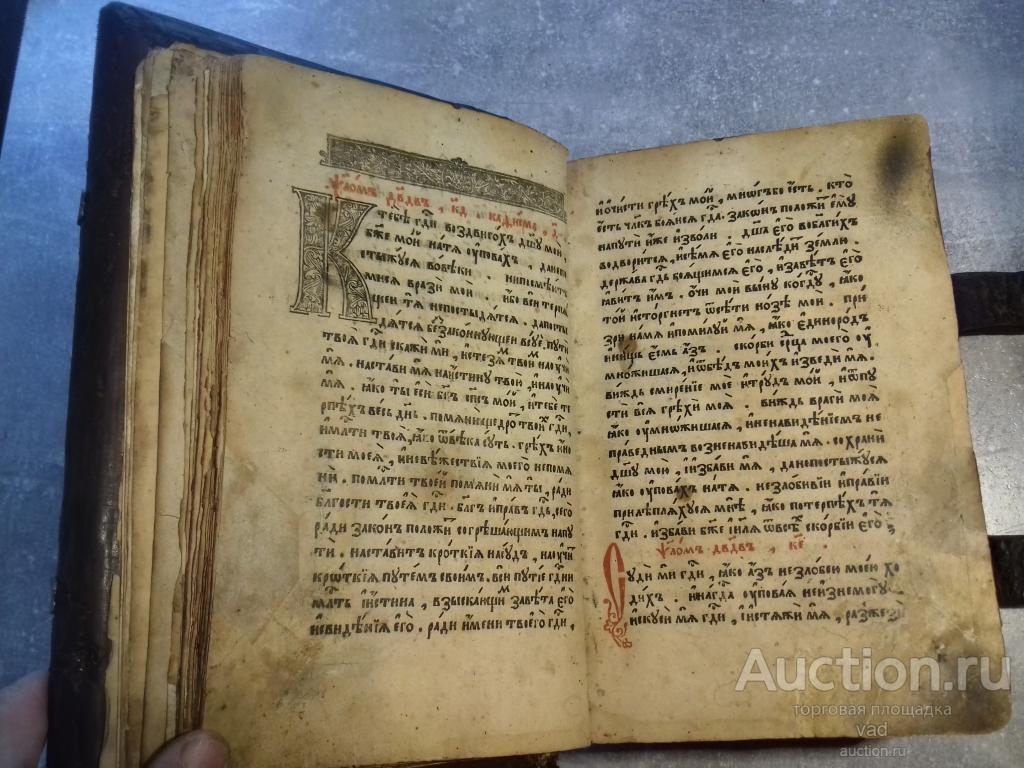 ѱало́мъ дв҃дв, к҃д. каѳи́сма, д҃.
К тебѣ̀ гдⷭ҇и воздвиго́хъ дш҃у мою̀,
бж҃е мо́й на тѧ̀ ᲂу҆пова́хъ, да не по
стыжу́сѧ во вѣ́ки. ни посмѣю́т
мисѧ вразѝ мои̇̀. и҆́бо всѝ терпѧ
щеи тѧ̀ не постыдѧ́тсѧ. да посты
дѧ́тсѧ беззако́ннующеи всꙋ́е. пути̇̀
твоѧ̀ гдⷭ҇и скажи́ ми, и҆ стезѧ́мъ твои́мъ наꙋчи
мѧ. наста́ви мѧ на и҆́стину твою̀, и҆ наꙋчи
мѧ. ꙗ҆́ко ты̀ є҆сѝ бг҃ъ сп҃съ мо́й, и҆ тебѐ те
рпѣ́хъ ве́сь дн҃ь. помѧни̇̀ щедро́ты твоѧ̀ гдⷭ҇и,
и҆ млⷭ҇ти твоѧ̀, ꙗ҆́ко ѿ вѣ́ка су́ть. грѣ́хъ ю҆но
сти моеѧ̀, и҆ невѣ́жествїѧ моего̀ не помѧ
нѝ. по млⷭ҇ти твое́й помѧни́ мѧ ты̀, ра́ди
бл҃гости твоеѧ̀ гдⷭ҇и. бл҃гъ и҆ пра́въ гдⷭ҇ь, сего̀
ра́ди зако́н положи́т согрѣша́ющимъ на пу
тѝ. наста́вит кро́ткїѧ на су́дъ, наꙋчи́т
кро́ткїѧ путе́мъ свои́мъ. всѝ путїѐ гдⷭ҇ни
млⷭ҇ть и҆ и҆́стина, взыска́ющимъ завѣ́та є҆го̀
и҆ свидѣ́нїѧ є҆го̀. ра́ди и҆́мени твоего̀ гдⷭ҇и,
и҆ ѡ҆чи́сти грѣ́хъ мо́й, мно́гъ бо є҆́сть. кто̀
є҆́сть чл҃къ боѧ́исѧ гдⷭ҇а. зако́нъ положи́т є҆му̀
на путѝ и҆́же и҆зво́ли. дш҃а є҆го̀ во бл҃ги́хъ
водвори́тсѧ, и҆ сѣ́мѧ є҆го̀ наслѣ́дит зе́млю.
держа́ва гдⷭ҇ь боѧ́щимсѧ є҆го̀, и҆ завѣ́тъ є҆го̀
ꙗ҆ви́тъ и҆̀мъ. ѻ҆́чи мои̇̀ вы́ну ко гдⷭ҇у, ꙗ҆́ко
то́й и҆сто́ргнетъ ѿ сѣ́ти но́зѣ мои̇̀. при́
зри на мѧ̀ и҆ поми́луй мѧ, ꙗ҆́ко є҆диноро́дъ
и҆ ни́щь є҆́смь а҆́зъ. ско́рби ср҃дца моего̀ ᲂу҆
мно́жишасѧ, и҆ ѿ бѣ́дъ мои́хъ и҆зведи́ мѧ.
ви́ждь смире́нїе моѐ и҆ тру́дъ мо́й, и҆ ѿпу
стѝ всѧ̀ грѣхѝ моѧ̀. ви́ждь врагѝ моѧ̀
ꙗ҆́ко ᲂу҆мно́жишасѧ, и҆ ненави́дѣнїемъ не
пра́веднымъ возненави́дѣша мѧ. сохранѝ
дш҃у мою̀, и҆ и҆зба́ви мѧ, да не постыжу́сѧ
ꙗ҆́ко ᲂу҆пова́хъ на тѧ̀. не зло́бивїи и҆ пра́вїи
прилѣплѧ́хусѧ мнѣ̀, ꙗ҆́ко потерпѣ́хъ тѧ̀
гдⷭ҇и. и҆зба́ви бж҃е і҆и҃лѧ ѿ всѣ́хъ ско́рбїи є҆го̀,
ѱало́мъ дв҃дв, к҃є.
Суди́ ми гдⷭ҇и, ꙗ҆́ко а҆́зъ не зло́бою мое́ю хо
ди́хъ. и҆ на гдⷭ҇а ᲂу҆пова́ѧ не и҆знемогу̀,
и҆скуси́ мѧ гдⷭ҇и, и҆ и҆стѧжи́ мѧ, разжезѝ
Auction.ru
торговая площадка
vad
auction.ru